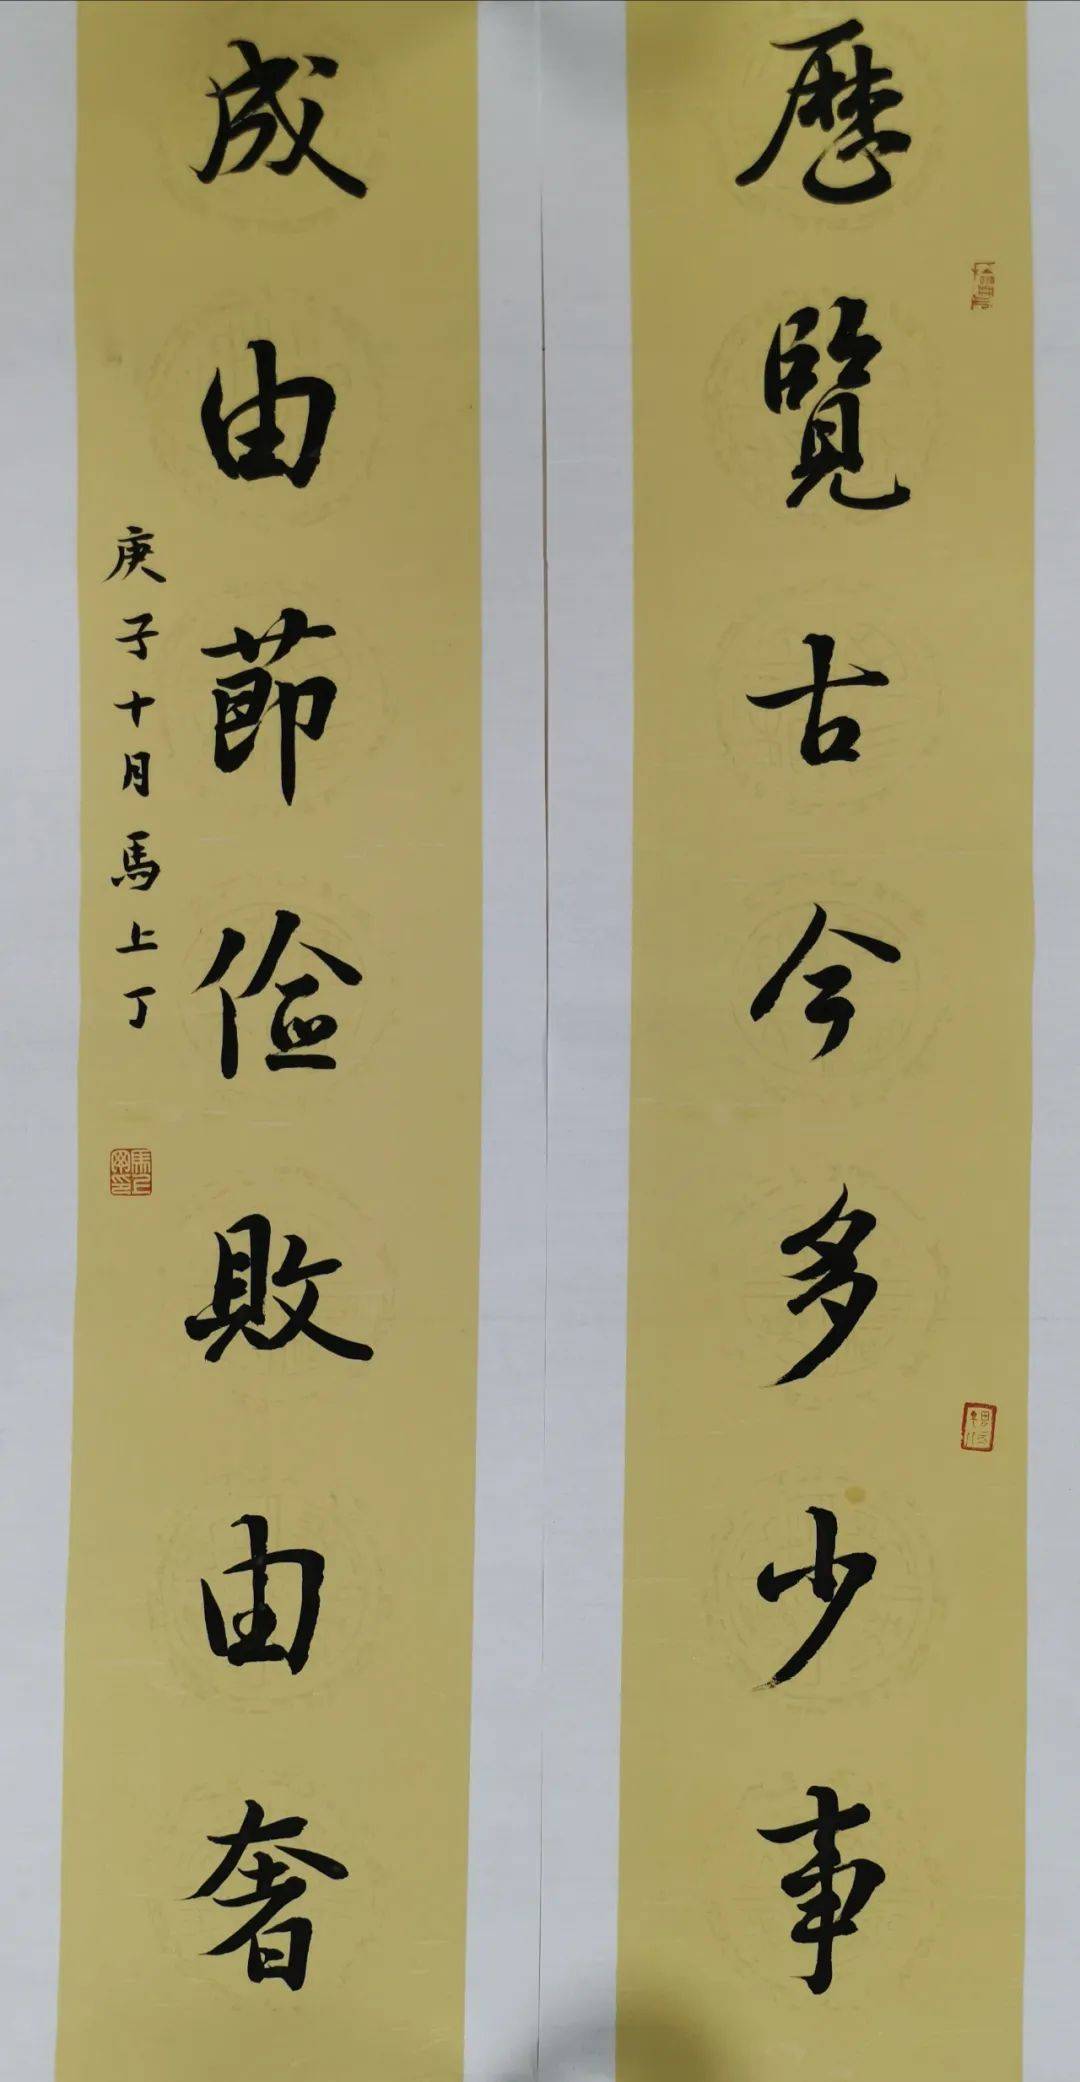 歷覽古今多少事
成由節儉敗由奢
庚子十月馬上丁